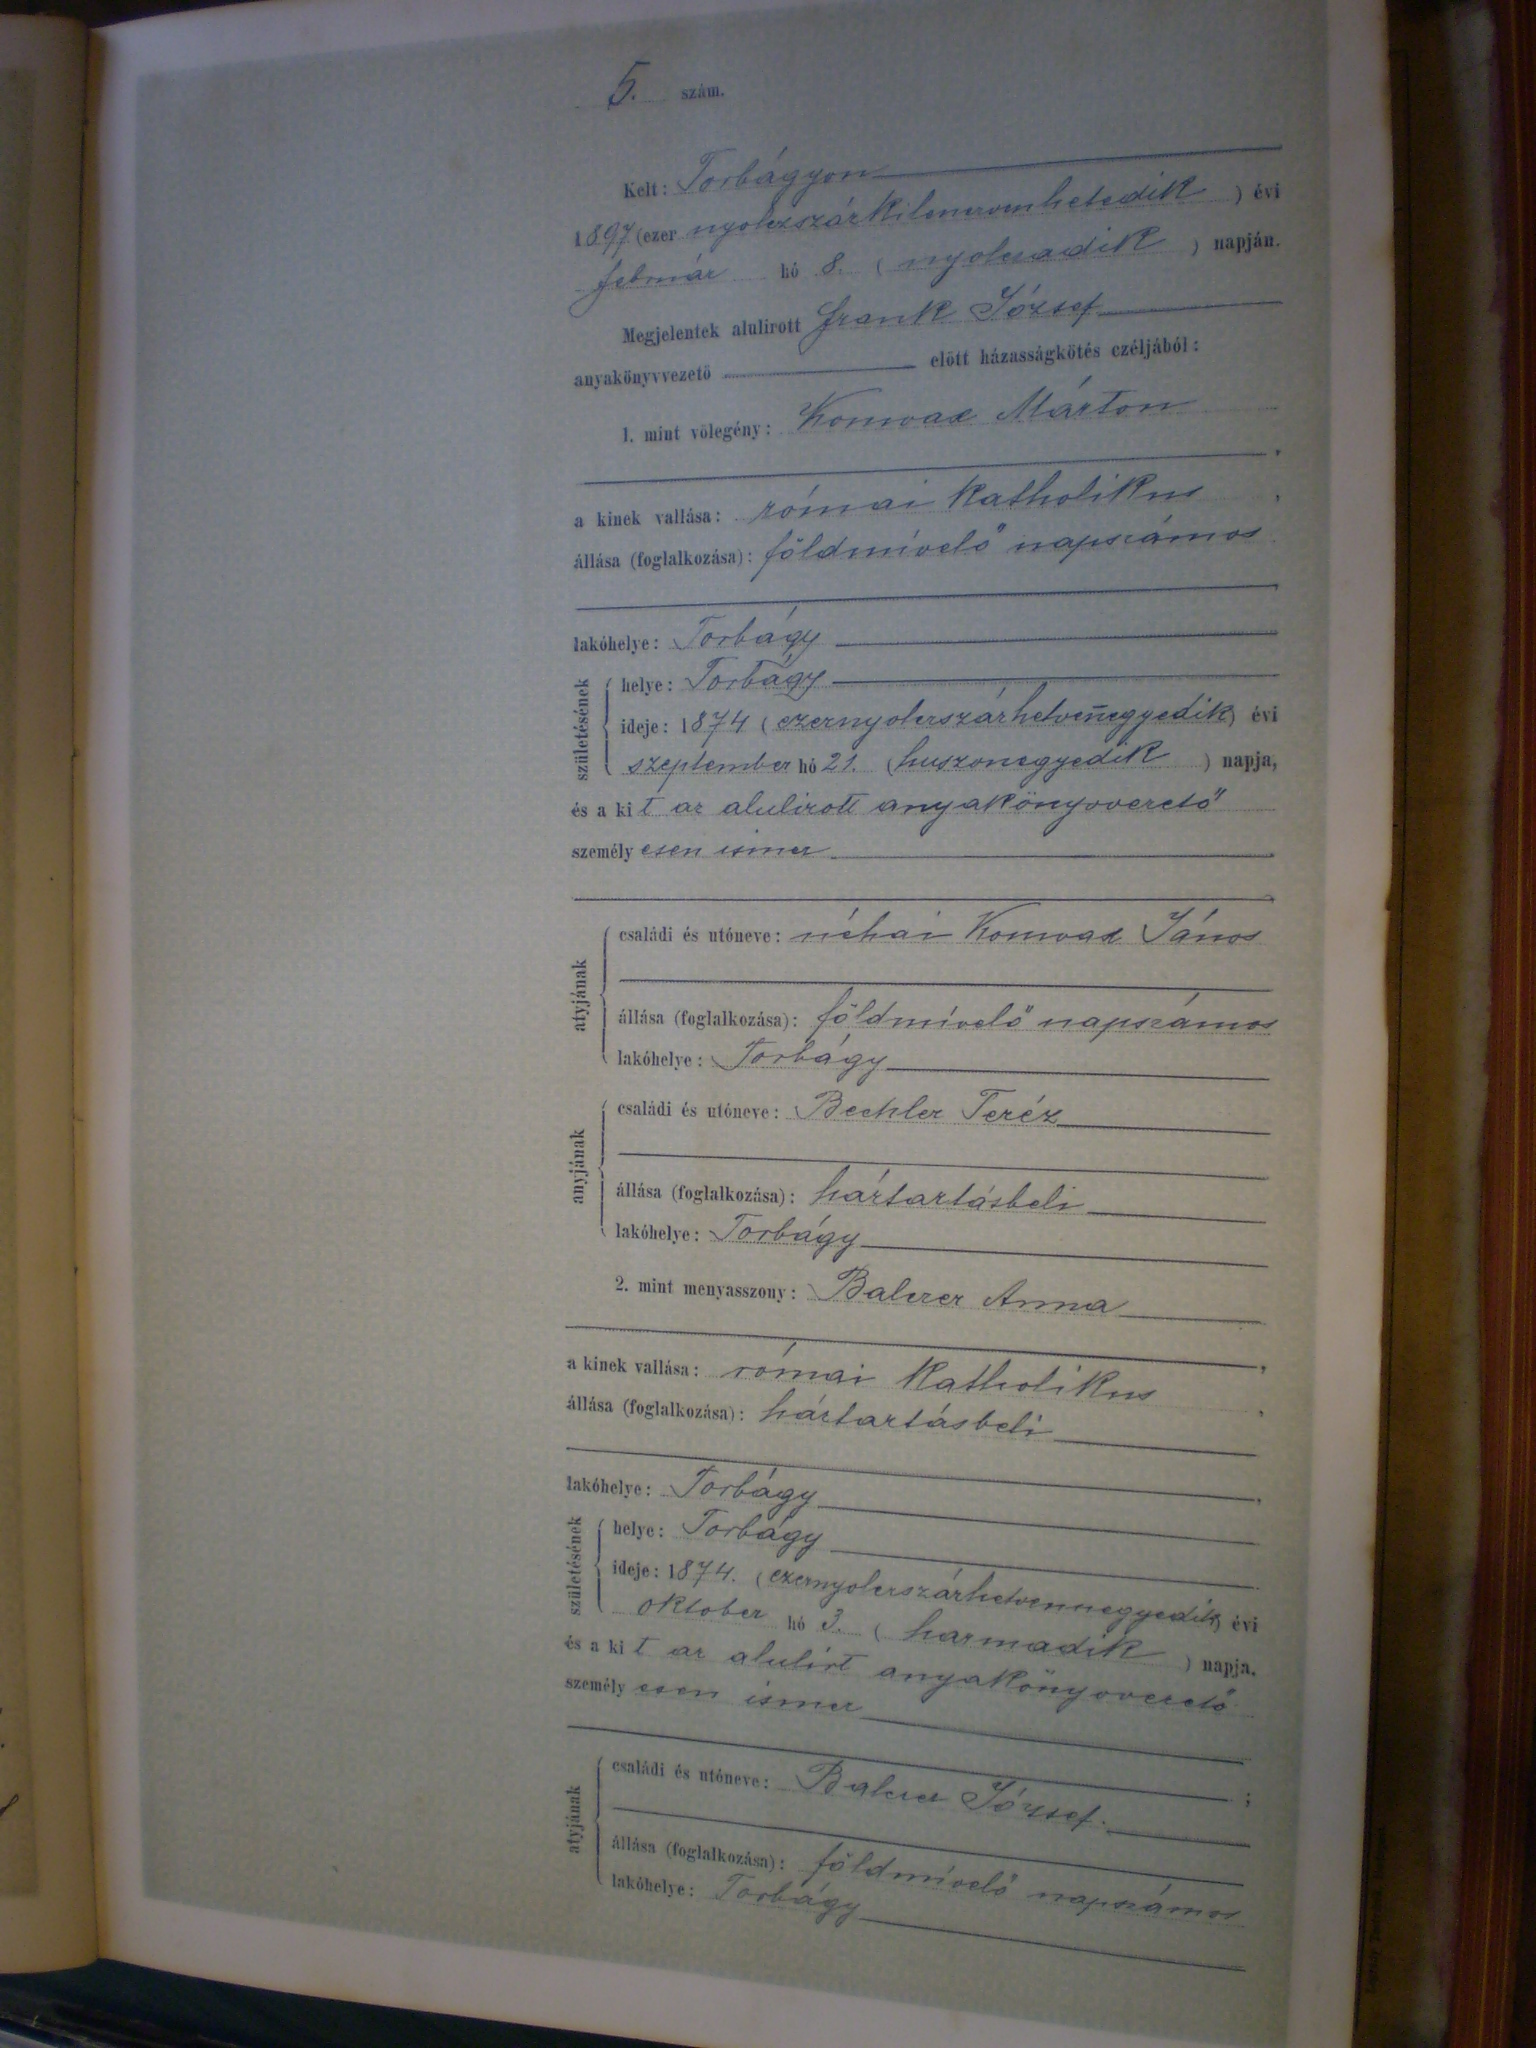 5. szám.
Kelt: Torbágyon
1897 (ezer nyolczszázkilenczvenhetedik) évi
február hó 8. (nyolczadik) napján.
Megjelentek alulirott Frank József
anyakönyvvezető előtt házasságkötés czéljából:
1. mint vőlegény: Komvax Márton
a kinek vallása: római katholikus,
állása (foglalkozása): földmívelő napszámos
lakóhelye: Torbágy
születésének
helye: Torbágy
ideje: 1874 (ezernyolczszázhetvennegyedik) évi
szeptember hó 21. (huszonegyedik) napja,
és a kit az alulirott anyakönyvvezető
személyesen ismer
atyjának
családi és utóneve: néhai Komvax János
állása (foglalkozása): földmívelő napszámos
lakóhelye: Torbágy
anyjának
családi és utóneve: Bechler Teréz
állása (foglalkozása): háztartásbeli
lakóhelye: Torbágy
2. mint menyasszony: Balczer Anna
a kinek vallása: római katholikus,
állása (foglalkozása): háztartásbeli
lakóhelye: Torbágy,
születésének
helye: Torbágy
ideje: 1874. (ezernyolczszázhetvennegyedik) évi
október hó 3. (harmadik) napja.
és a kit az alulírt anyakönyvvezető
személyesen ismer
atyjának
családi és utóneve: Balczer József.;
állása (foglalkozása): földmívelő napszámos
lakóhelye: Torbágy